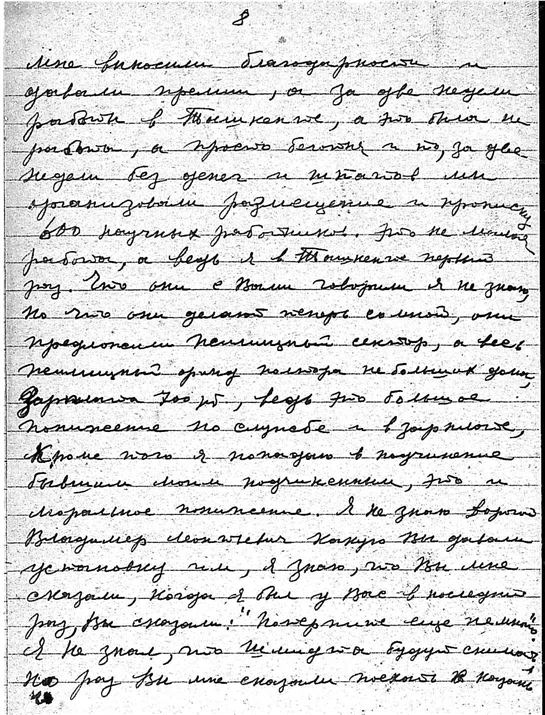 8
мне выносили благодарности и
давали премии, а за две недели
работы в Ташкенте, а это была не
работа, а просто беготня и то, за две
недели без денег и штатов мы
организовали размещение и прописку
600 научных работников. Это не малая
работа, а ведь я в Ташкенте первый
раз. Что они с Вами говорили я не знаю,
но что они делают теперь со мной, они
предложили жилищный сектор, а весь
жилищный фонд полтора не больших дома,
Зарплата 700 рб, ведь это большое
понижение по службе и в зарплате,
Кроме того я попадаю в подчинение
бывшим моим подчиненным, это и
моральное понижение. Я не знаю дорогой
Владимер Леонтьевич какую Вы давали
установку им, я знаю, что Вы мне
сказали, когда я был у Вас в последний
раз, Вы сказали: "Потерпите еще немного".
Я не знал, что Шмидта будут снимать
раз Вы мне сказали поехать в Казань